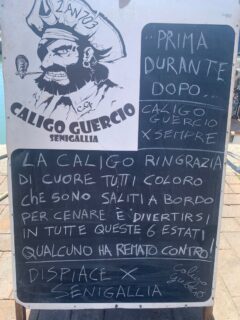 ZANZO'S
CALIGO GUERCIO
SENIGALLIA
..PRIMA
DURANTE
DOPO..
CALIGO
GUERCIO
X SEMPRE
LA CALIGO RINGRAZIA
DI CUORE TUTTI COLORO
CHE SONO SALITI A BORDO
PER CENARE E DIVERTIRSI
IN TUTTE QUESTE 6 ESTATI
QUALCUNO HA REMATO CONTRO!
DISPIACE X
SENIGALLIA